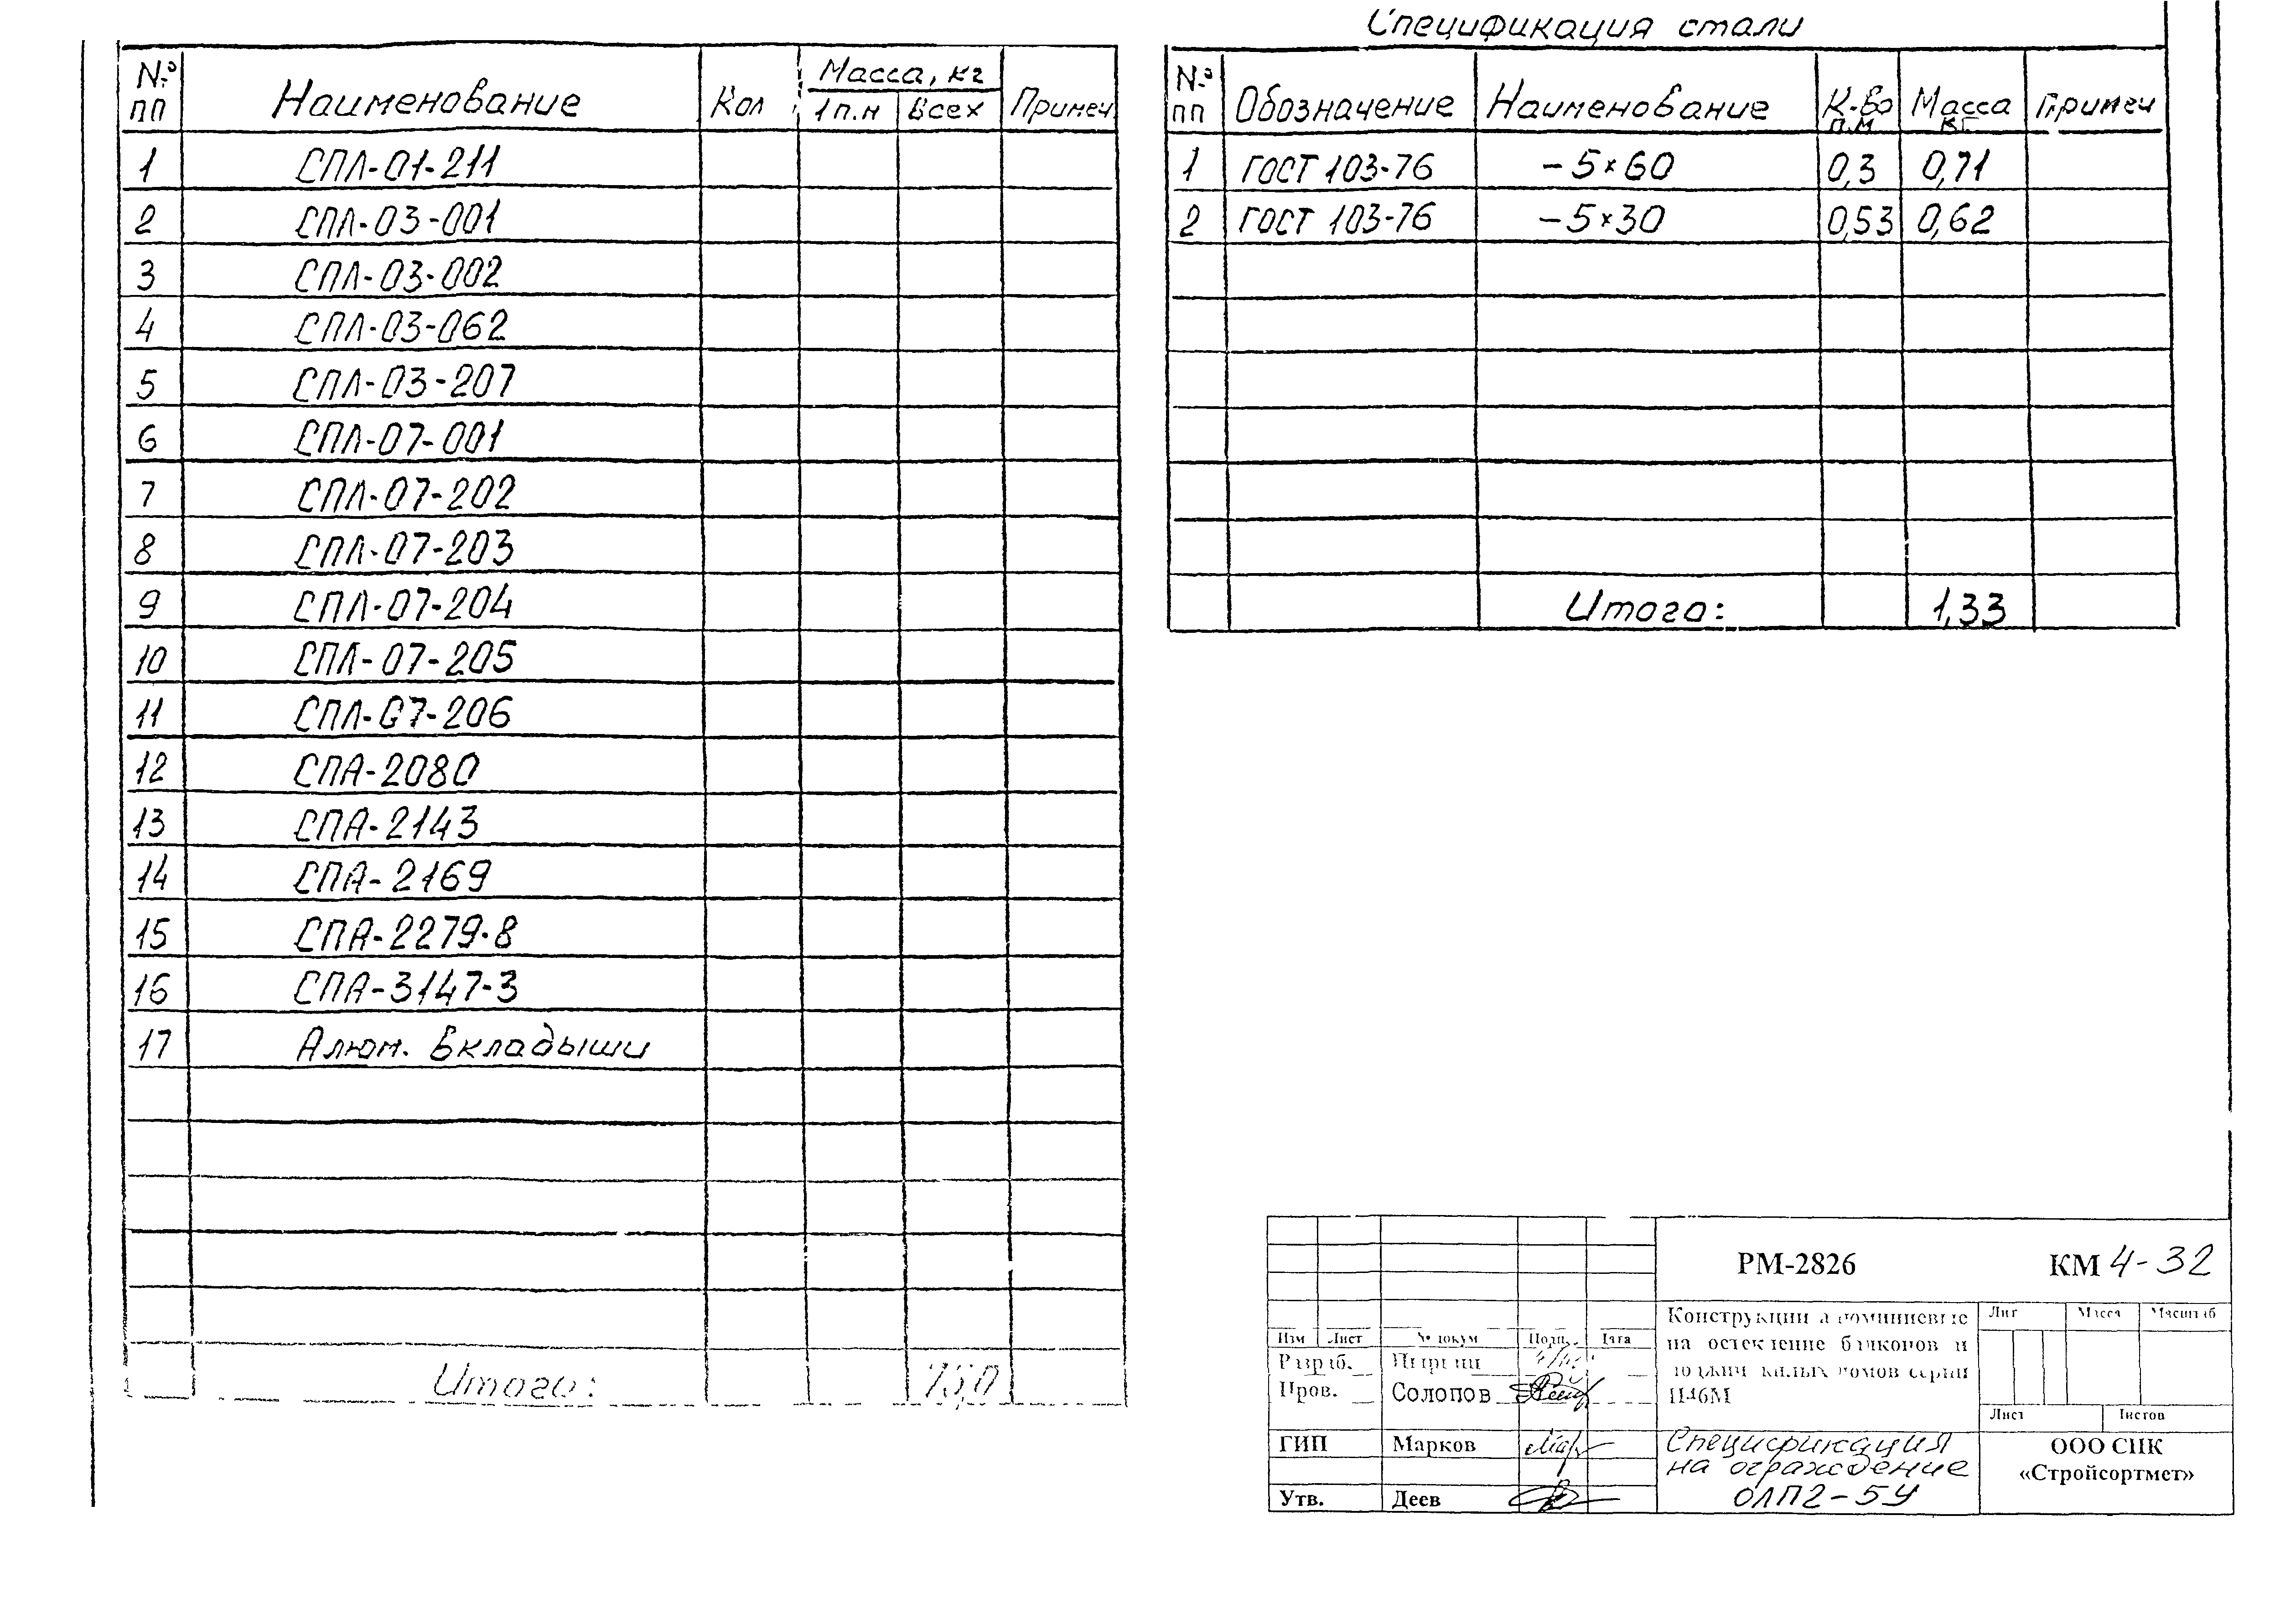 № пп Наименование Кол Масса, кг Примеч
1 п.м Всех
1 СПЛ-01-211
2 СПЛ-03-001
3 СПЛ-03-002
4 СПЛ-03-062
5 СПЛ-03-207
6 СПЛ-07-001
7 СПЛ-07-202
8 СПЛ-07-203
9 СПЛ-07-204
10 СПЛ-07-205
11 СПЛ-07-206
12 СПА-2080
13 СПА-2143
14 СПА-2169
15 СПА-2279-8
16 СПА-3147-3
17 Алюм. Вкладыши
Итого:
Спецификация стали
№ пп Обозначение Наименование К-во п.м Масса кг. Примеч
1 ГОСТ 103-76 -5×60 0,3 0,71
2 ГОСТ 103-76 -5×30 0,53 0,62
Итого: 1,33
РМ-2826 КМ 4-32
Конструкции алюминиевые
на остекление балконов и
лоджий жилых домов серии
П46М
Лит Масса Масштаб
Изм Лист № докум Подп. Дата
Разраб.
Пров. Солопов
Лист Листов
ГИП Марков
Утв. Деев
Спецификация
на ограждение
ОЛП2-5У
ООО СПК
«Стройсортмет»